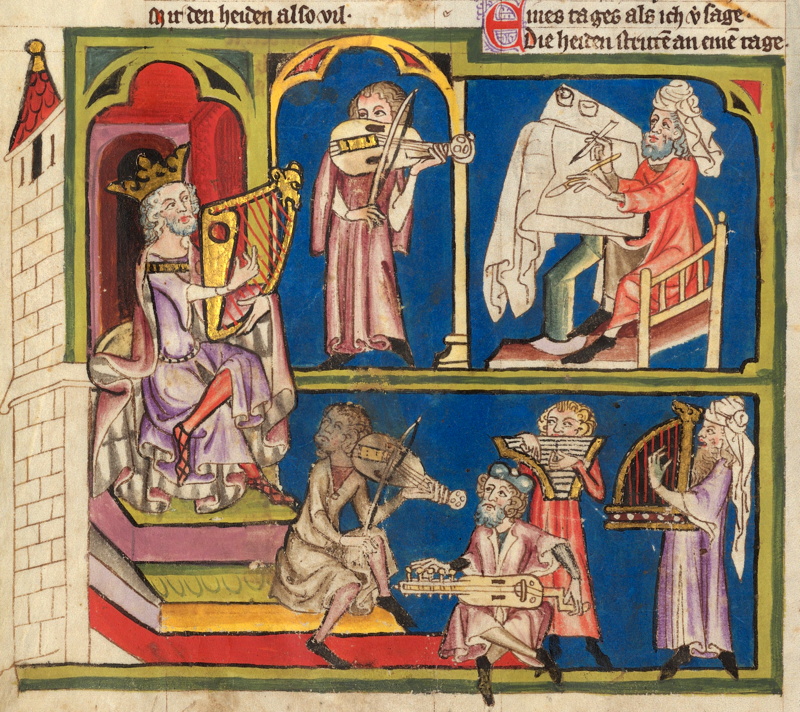 Mit den heiden alſo vil·
Eines tages als ich v̊ ſage·
Die heiden ſtritē an einē tage·